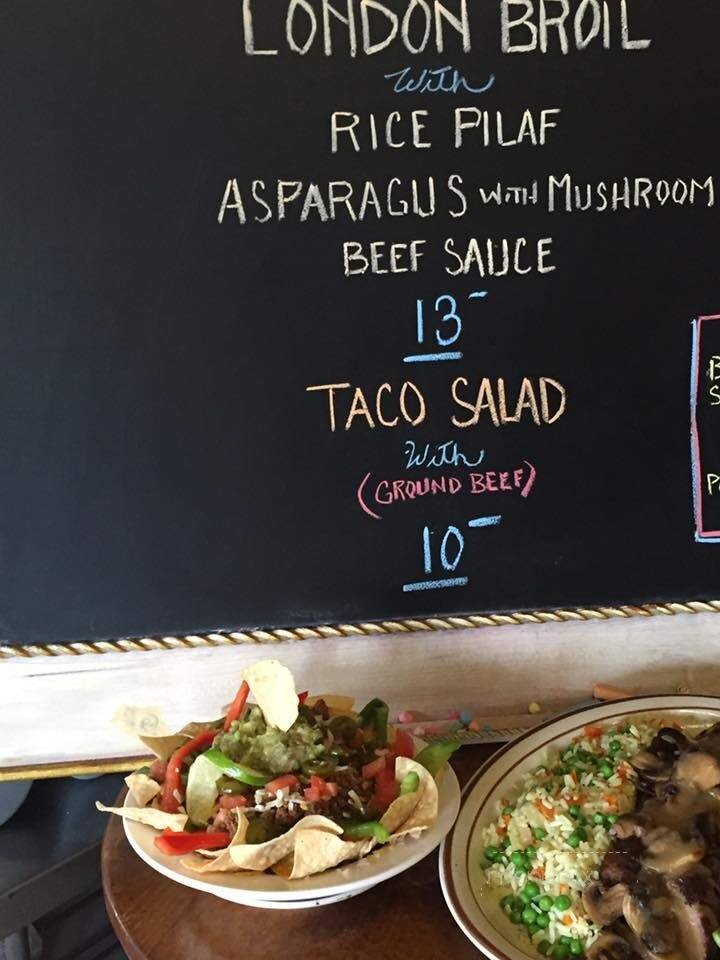 LONDON BROIL
With
RICE PILAF
ASPARAGUS WITH MUSHROOM
BEEF SAUCE
13-
TACO SALAD
With
(GROUND BEEF)
10-